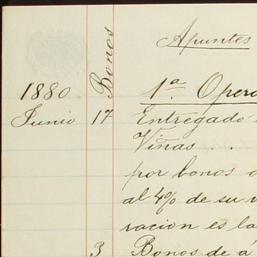 Apuntes
Bonos
1880 1ª Oper
Junio 17 Entregado
Viñas . .
por bonos
al 4% de su
racion es la
3 Bonos de á